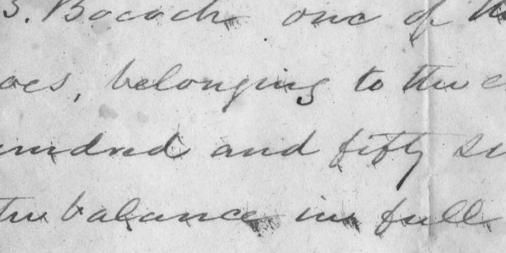 S. Bocock one of
belonging to the
and fifty
the balance in full